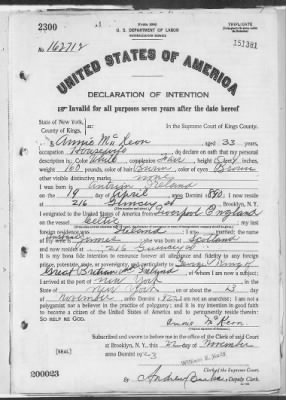 2300
Form 2202
U. S. DEPARTMENT OF LABOR
NATURALIZATION SERVICE
TRIPLICATE
No. 162712
151381
UNITED STATES OF AMERICA
DECLARATION OF INTENTION
Invalid for all purposes seven years after the date hereof
State of New York,
County of Kings,
ss:
In the Supreme Court of Kings County.
I, Annie McKeon, aged 33 years,
occupation Housewife, do declare on oath that my personal
description is: Color White, complexion Fair, height feet inches,
weight 160 pounds, color of hair Brown, color of eyes Brown
other visible distinctive marks
I was born in Antrim Ireland
on the 19 day of April, anno Domini 1890; I now reside
at 216 St, Brooklyn, N.Y.
I emigrated to the United States of America from Liverpool England
on the vessel Celtic; my last
foreign residence was Ireland; I am married; the name
of my is James; he was born in Scotland
and now resides at 216
It is my bona fide intention to renounce forever all allegiance and fidelity to any foreign
prince, potentate, state, or sovereignty, and particularly to George V King of
Great Britain and Ireland, of whom I am now a subject;
I arrived at the port of New York, in the
State of New York, on or about the 13 day
of November, anno Domini; I am not an anarchist; I am not a
polygamist nor a believer in the practice of polygamy; and it is my intention in good faith
to become a citizen of the United States of America and to permanently reside therein:
SO HELP ME GOD.
Annie McKeon
Subscribed and sworn to before me in the office of the Clerk of said Court
at Brooklyn, N.Y., this 22 day of November
anno Domini 1923
[SEAL]
William E. Kelly
Clerk of the Supreme Court.
200023
By Andrew, Deputy Clerk.